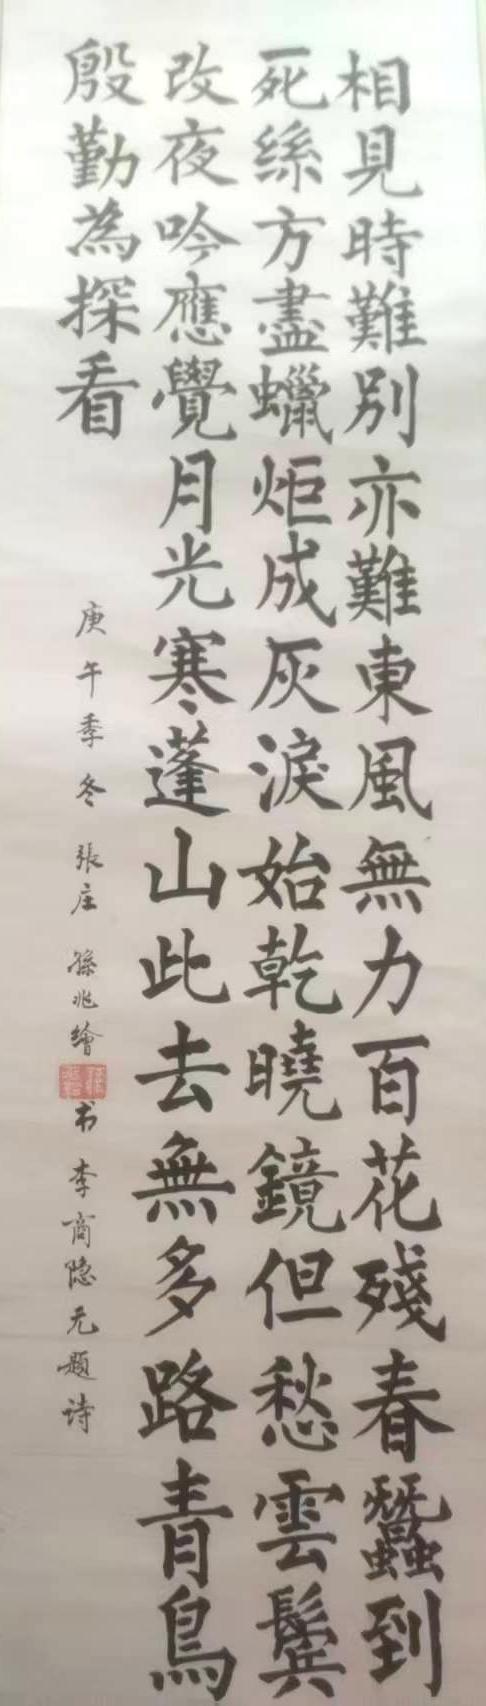 相見時難別亦難東風無力百花殘春蠶到
死絲方盡蠟炬成灰淚始乾曉鏡但愁雲鬂
改夜吟應覺月光寒蓬山此去無多路青鳥
殷勤為探看
庚午季冬 張庄 孫兆繪 书李商隐无题诗